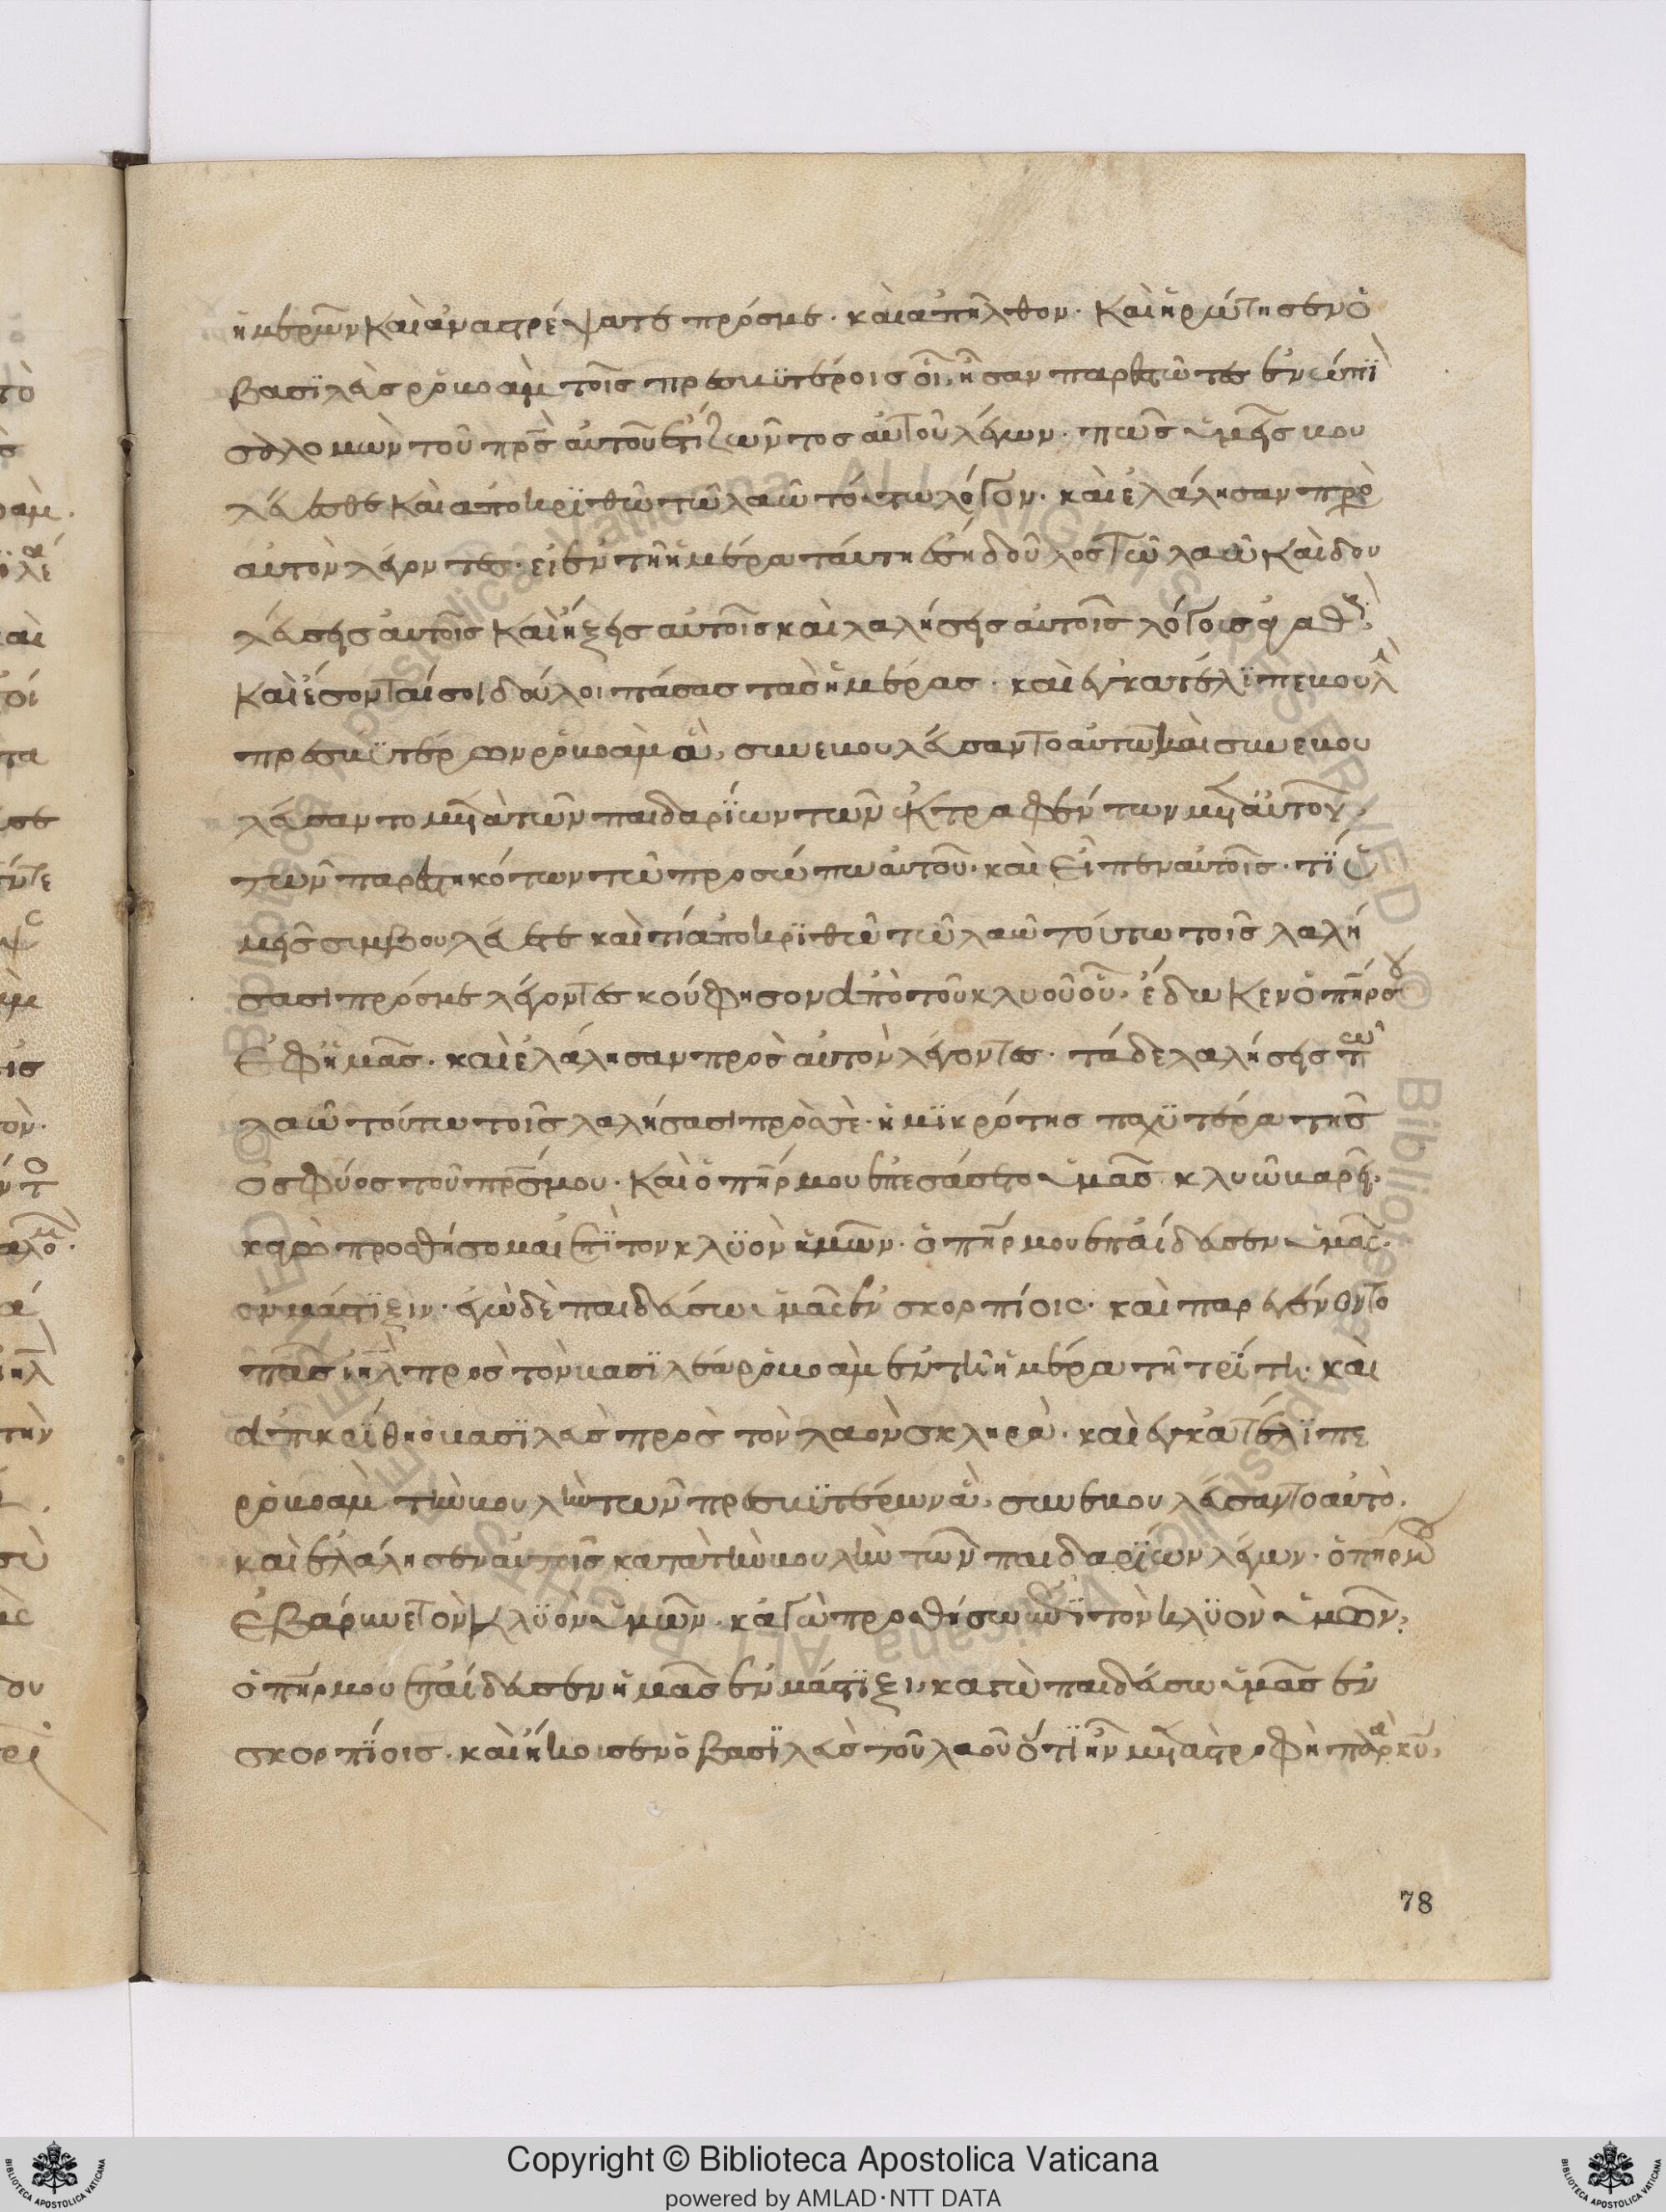 ἡμερῶν καὶ ἀναστρέψατε πρός με· καὶ ἀπῆλθον· καὶ ἠρώτησεν ὁ
βασϊλεὺς ροβοὰμ τοῖς πρεσβϋτέροις οἳ ἦσαν παρεστῶτες ἐνώπϊ
σολομὼν τοῦ πρς αὐτοῦ ἔτι ζῶντος αὐτοῦ λέγων· πῶς ὑμεῖς βου
λεύεσθε καὶ ἀποκρϊθῶ τῶ λαῶ τούτω λόγον· καὶ ἐλάλησαν πρὸ
αὐτὸν λέγοντες· εἰ ἐν τῆ ἡμέρα ταύτη ἔση δοῦλος τῶ λαῶ καὶ δου
λεύσης αὐτοῖς καὶ ἥξεις αὐτοῖς καὶ λαλήσης αὐτοῖς λόγους ἀγαθ
καὶ ἔσονταί σοι δοῦλοι πάσας τὰς ἡμέρας· καὶ ἐγκατέλϊπε βουλ
πρεσβϋτέρων ροβοὰμ ἃ συνεβουλεύσαντο αὐτῶ καὶ συνεβου
λεύσαντο μετὰ τῶν παιδαρϊων τῶν ἐκτραφέντων μετ αὐτοῦ,
τῶν παρεστηκότων τῶ προσώπω αὐτοῦ· καὶ εἶπεν αὐτοῖς· τϊ ὑ
μεῖς συμβουλεύετε καὶ τί ἀποκρϊθῶ τῶ λαῶ τούτω τοῖς λαλή
σασι πρός με λέγοντες κούφησον ἀπὸ τοῦ κλυοῦ οὗ ἔδωκεν ὁ πήρ σου
ἐφ ἡμᾶς· καὶ ἐλάλησαν πρὸς αὐτὸν λέγοντες· τάδε λαλήσης τῶ
λαῶ τούτω τοῖς λαλήσασι πρὸς σέ· ἡ μϊκρότης παχϋτέρα τῆς
ὀσφύος τοῦ πρς μου· καὶ ὁ πήρ μου ἐπεσάσετο ὑμᾶς κλυῶ βαρεῖ·
καγὼ προσθήσομαι ἐπϊ τὸν κλϋὸν ἡμῶν· ὁ πήρ μου ἐπαίδευσεν ὑμᾶς·
ἐν μάστϊξιν· ἐγὼ δὲ παιδεύσω ὑμᾶς ἐν σκορπίοις· καὶ παρεγένοντο
πᾶς ιηλ πρὸς τὸν βασϊλέα ροβοὰμ ἐν τῆ ἡμέρα τῆ τρϊτη· καὶ
ἀπεκρϊθη ὁ βασϊλεὺς πρὸς τὸν λαὸν σκληρὰ· καὶ ἐγκατέλϊπε
ροβοὰμ τὴν βουλὴν τῶν πρεσβϋτέρων ἃ συνεβουλεύσαντο αὐτὸ·
καὶ ἐλάλησεν αὐτοῖς κατὰ τὴν βουλὴν τῶν παιδαρϊων λέγων· ὁ πήρ μου
ἐβάρυνε τὸν κλϋὸν ὑμῶν· καγὼ προσθήσω ἐπϊ τὸν κλϋὸν ὑμῶν,
ὁ πήρ μου ἐπαίδευσεν ἡμᾶς ἐν μάστϊξι, καγὼ παιδεύσω ὑμᾶς ἐν
σκορπϊοις· καὶ ἤκουσεν ὁ βασϊλεὺς τοῦ λαοῦ ὅτι ἦν μεταστροφὴ παρὰ κυ,
78
Copyright © Biblioteca Apostolica Vaticana
powered by AMLAD·NTT DATA